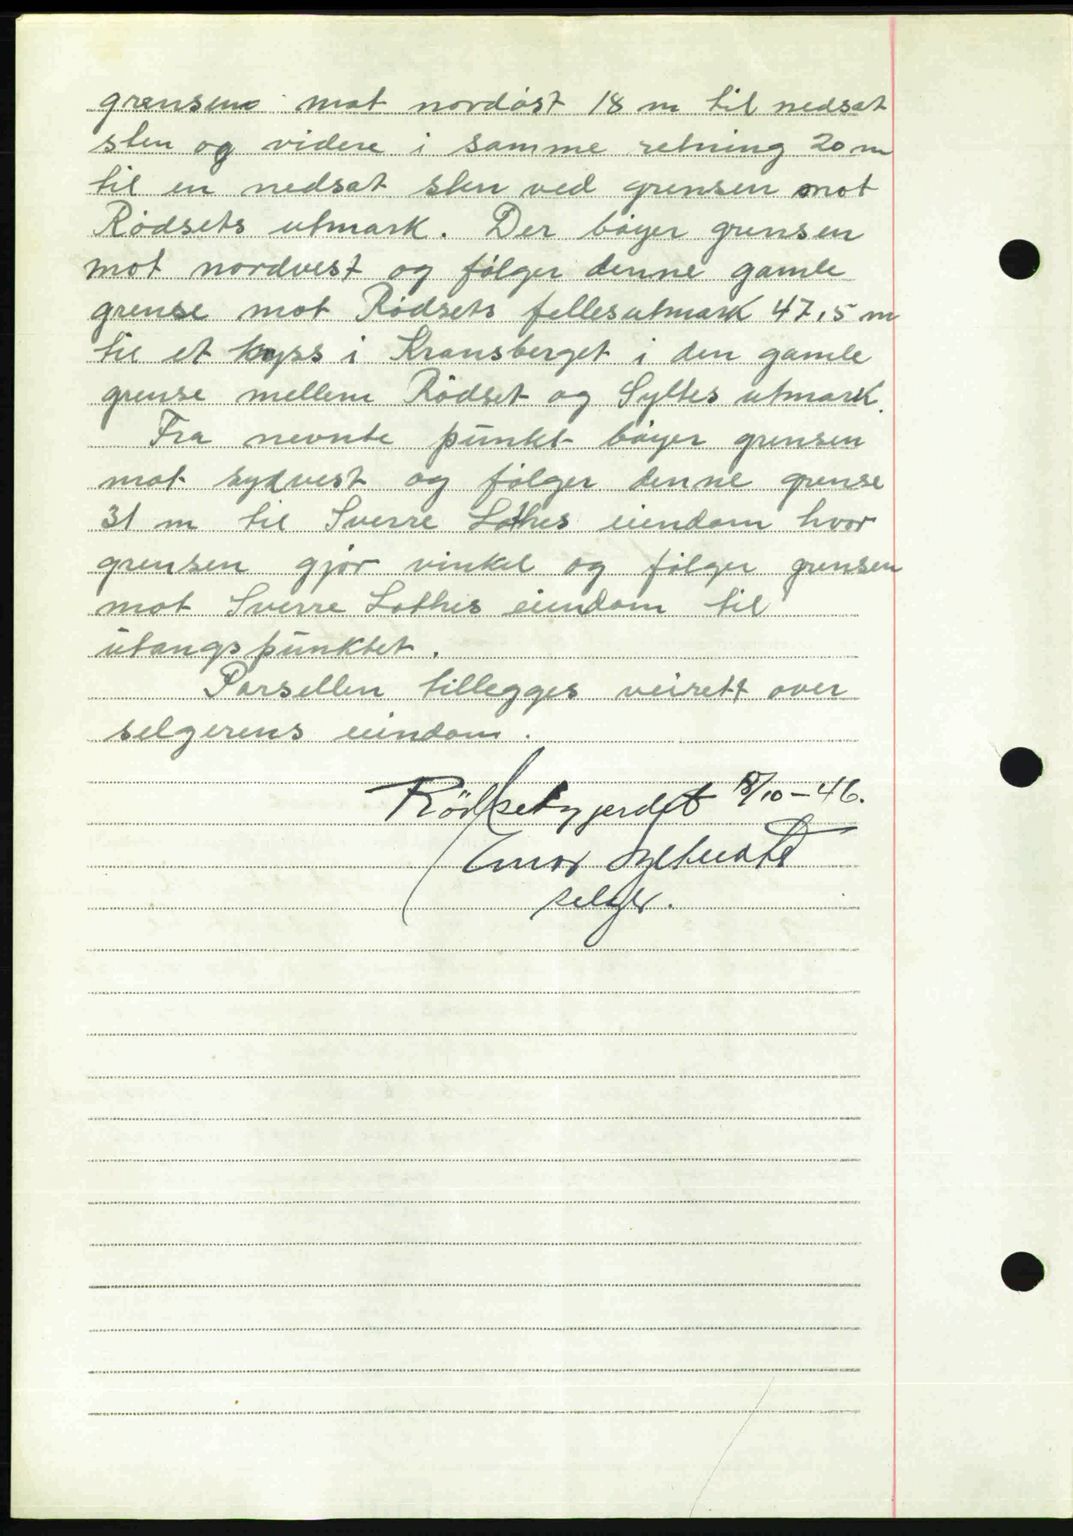 grensen mot nordøst 18 m til nedsat
sten og videre i samme retning 20 m
til en nedsat sten ved grensen mot
Rødsets utmark. Der bøyer grensen
mot nordvest og følger denne gamle
grense mot Rødsets fellesutmark 47,5 m
til et kryss i Kransberget i den gamle
grense mellem Rødset og Syltes utmark.
Fra nevnte punkt bøyer grensen
mot sydvest og følger denne grense
31 m til Sverre Lothes eiendom hvor
grensen gjør vinkel og følger grensen
mot Sverre Lothes eiendom til
utangspunktet.
Parsellen tillegges veirett over
selgerens eiendom.
Rödsetgjerdet /10-46.
selger.